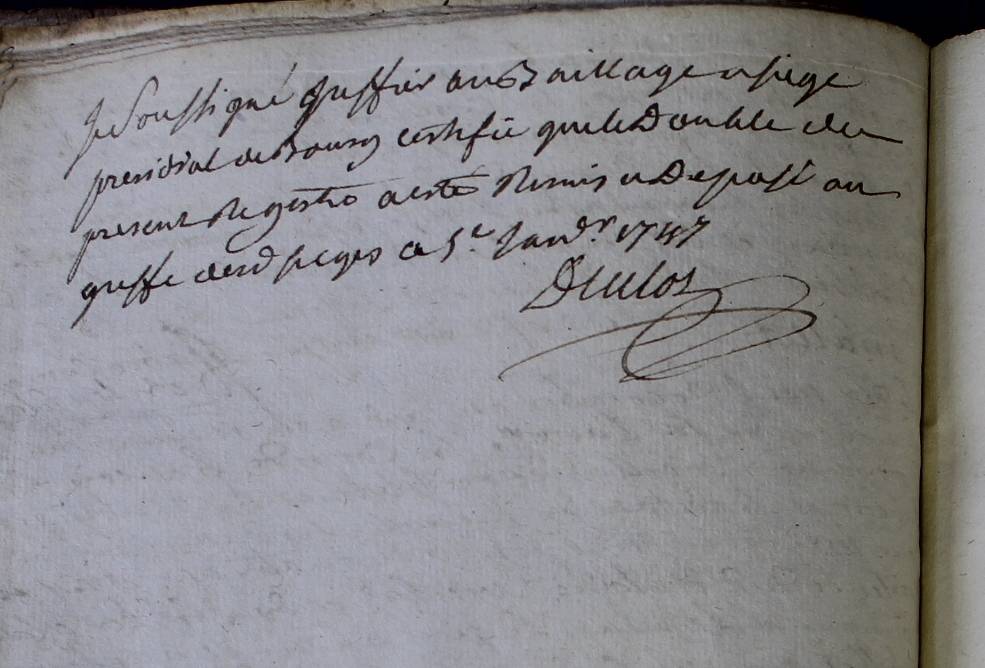 Je Soussigné Greffier au Baillage et siege
presidial de Bourg certifie que le Double du
present Registre a esté Remis et Deposé au
greffe desd sieges ce 5e Janvr 1747
Duclos